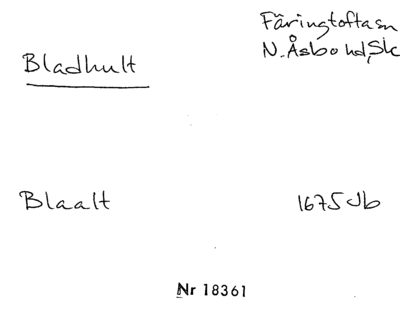 Färingtofta sn
N. Åsbo hd, Sk
Bladhult
Blaalt 1675 Jb
Nr 18361